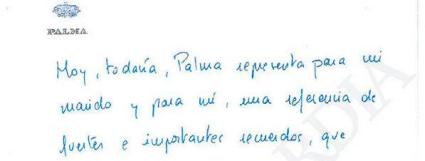 PALMA
Hoy, todavía, Palma representa para mi
marido y para mí, una referencia de
fuertes e importantes recuerdos, que